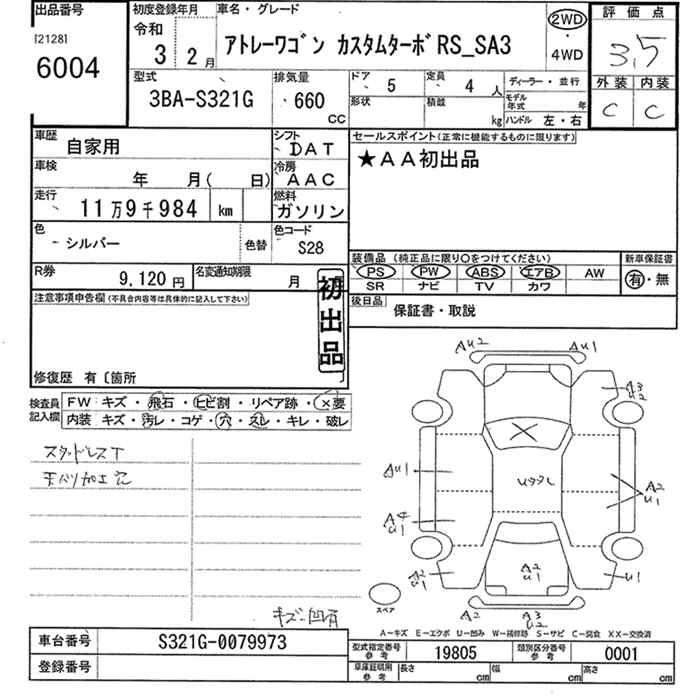 出品番号
[2128]
6004
初度登録年月
令和
3 2月
車名・グレード
アトレーワゴン カスタムターボRS_SA3
2WD
・
4WD
評価点
3.5
外装 内装
C C
型式
3BA-S321G
排気量
660
CC
ドア 5
定員 4 人
形状
積載 kg
ディーラー・並行
モデル年式 年
ハンドル 左・右
車歴 自家用
シフト DAT
セールスポイント(正常に機能するものに限ります)
★AA初出品
車検 年 月( 日)
冷房 AAC
走行 11万9千984 km
燃料 ガソリン
色 シルバー
色替
色コード S28
装備品 (純正品に限り○をつけてください)
PS PW ABS エアB AW
SR ナビ TV カワ
新車保証書
有・無
R券 9,120 円
名変通知期限 月
後日品 保証書・取説
注意事項申告欄(不具合内容等は具体的に記入して下さい)
初出品
修復歴 有〔箇所 〕
検査員記入欄
FW キズ・飛石・ヒビ割・リペア跡・×要
内装 キズ・汚レ・コゲ・穴・スレ・キレ・破レ
スタッドレスT
天バリ加工記
キズ・凹有
AU2 AU1
A3
U2
AU1
A4
U1
A2
U1
A2
U1
U1
A2
A3
U2
スペア
A-キズ E-エクボ U-凹み W-補修跡 S-サビ C-腐食 XX-交換済
車台番号 S321G-0079973
登録番号
型式指定番号 参考 19805
類別区分番号 参考 0001
車庫証明用 参考 長さ cm 幅 cm 高さ cm